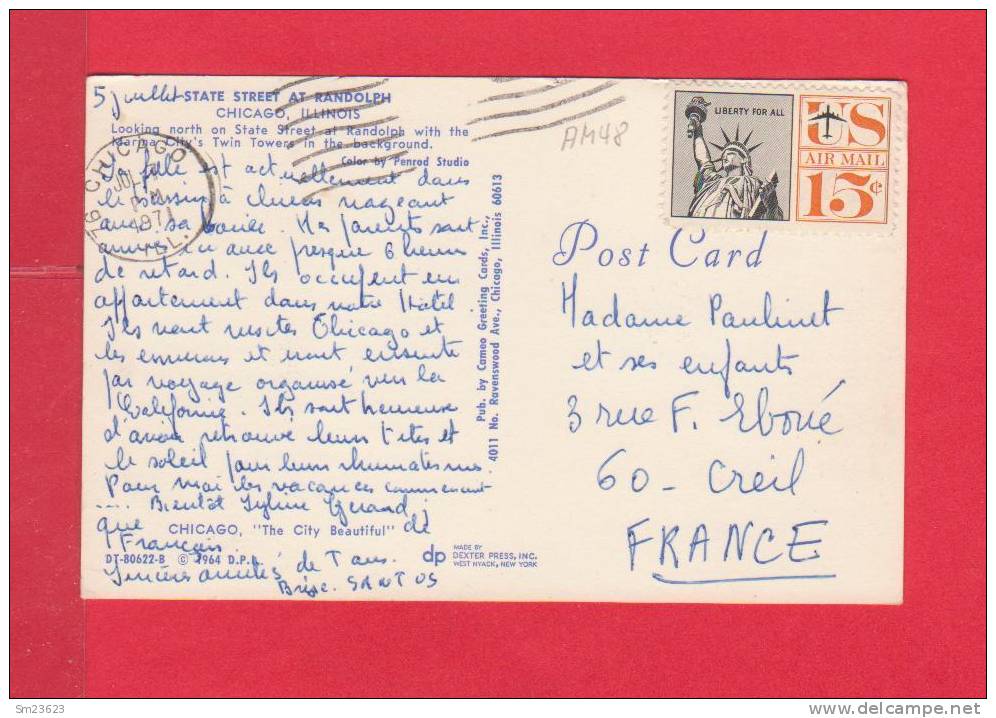 5 juillet
STATE STREET AT RANDOLPH
CHICAGO, ILLINOIS
Looking north on State Street at Randolph with the
Marina City's Twin Towers in the background.
Color by Penrod Studio
CHICAGO
JUL
PM
1971
ILL.
fille est actuellement dans
le bassin à nageant
avec sa bouée. Mes parents sont
arrivés ici avec presque 6 heures
de retard. Ils occupent un
appartement dans notre Hôtel.
Ils vont visiter Chicago et
les environs et iront ensuite
par voyage organisé vers la
Californie. Ils sont heureux
d'avoir retrouvé leurs p'tites et
le soleil pour leurs rhumatismes.
Pour moi les vacances commencent
.... Bientôt Sylvie
que
de
Français
CHICAGO, "The City Beautiful"
DT-80622-B © 1964 D.P.I.
Sincères amitiés de Tous.
SANTOS
Pub. by Cameo Greeting Cards, Inc.,
4011 No. Ravenswood Ave., Chicago, Illinois 60613
dp MADE BY
DEXTER PRESS, INC.
WEST NYACK, NEW YORK
AM48
LIBERTY FOR ALL
US
AIR MAIL
15¢
Post Card
Madame Paulinet
et ses enfants
3 rue F. Eboué
60 - Creil
FRANCE
Sm23623
www.delcampe.net